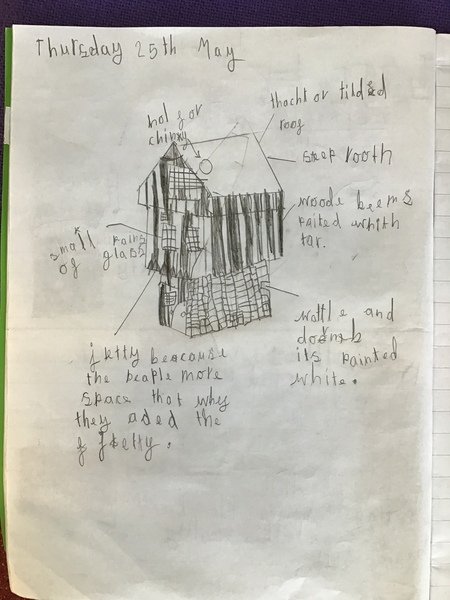 Thursday 25th May
hol for
chimny
thacht or tilded
roof
steep rooth
woode beems
paited whith
tar.
small pains
of glass
wattle and
doamb
its painted
white.
jetty beacause
the people more
space that why
they aded the
jetty.